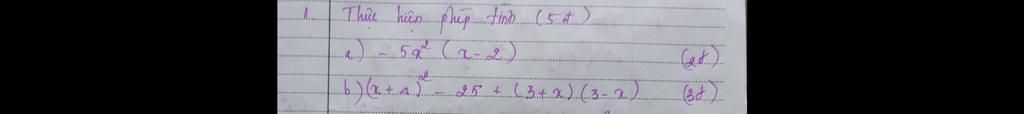 1. Thực hiện phép tính (5đ)
a) - 5x² (x - 2) (2đ)
b) (x + 4)² - 25 + (3 + x) (3 - x) (3đ)